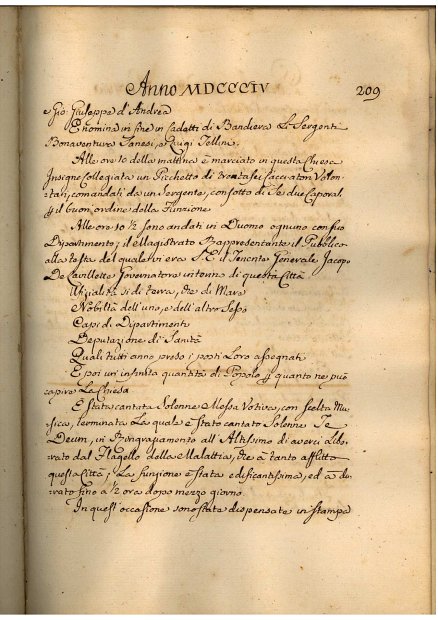 Anno MDCCCIV 209
e Gio: Giuseppe d'Andrea
E nomina in fine in Cadetti di Bandiera Li Sergenti
Bonaventura Sanesi, e Luigi Tellini.
Alle ore 10 della mattina è marciato in questa Chiesa
Insigne Collegiata un Picchetto di trentasei Cacciatori Volon-
tari, comandati da un Sergente, con sotto di se due Caporali
p il buon ordine della Funzione
Alle ore 10 1/2 sono andati in Duomo ognuno con suo
Dipartimento; il Magistrato Rappresentante il Pubblico
alla testa del quale vi era S. E. il Tenente Generale Jacopo
De Lavillette Governatore interino di questa Città
Ufizialità sì di terra, che di Mare
Nobiltà dell'uno, e dell'altro Sesso
Capi di Dipartimenti
Deputazione di Sanità
Quali tutti anno preso i posti Loro assegnati
E poi un infinita quantità di Popolo p quanto ne può
capire La Chiesa
È stata cantata Solenne Messa Votiva, con scelta Mu-
sica, terminata La quale è stato cantato Solenne Te
Deum, in Ringraziamento all'Altissimo di averci Libe-
rato dal Flagello della Malattia, che à tanto afflitto
questa Città; La funzione è stata edificantissima, ed à du-
rato fino a 1/2 ora dopo mezzo giorno
In quest'occasione sono state dispensate in stampa